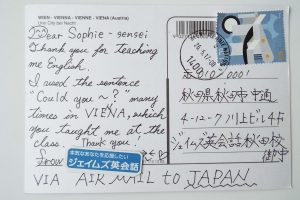 WIEN - VIENNA - VIENNE - VIENA (Austria)
Dear Sophie-sensei
Thank you for teaching
me English.
I used the sentence
"Could you ~?" many
times in VIENA, which
you taught me at the
class. Thank you.
From
本気なあなたを応援したい
ジェイムズ英会話
秋田県秋田市中通
4-12-7 川上ビル4F
ジェイムズ英会話秋田校
御中
VIA AIR MAIL to JAPAN